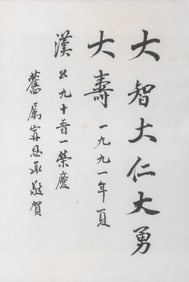 大智大仁大勇
大壽 一九九一年夏
漢公九十晉一榮慶
舊屬弈恩承敬賀